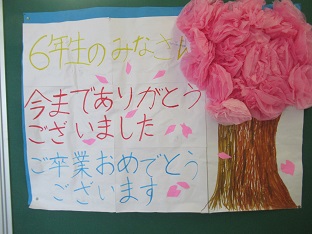 6年生のみなさん
今までありがとう
ございました
ご卒業おめでとう
ございます